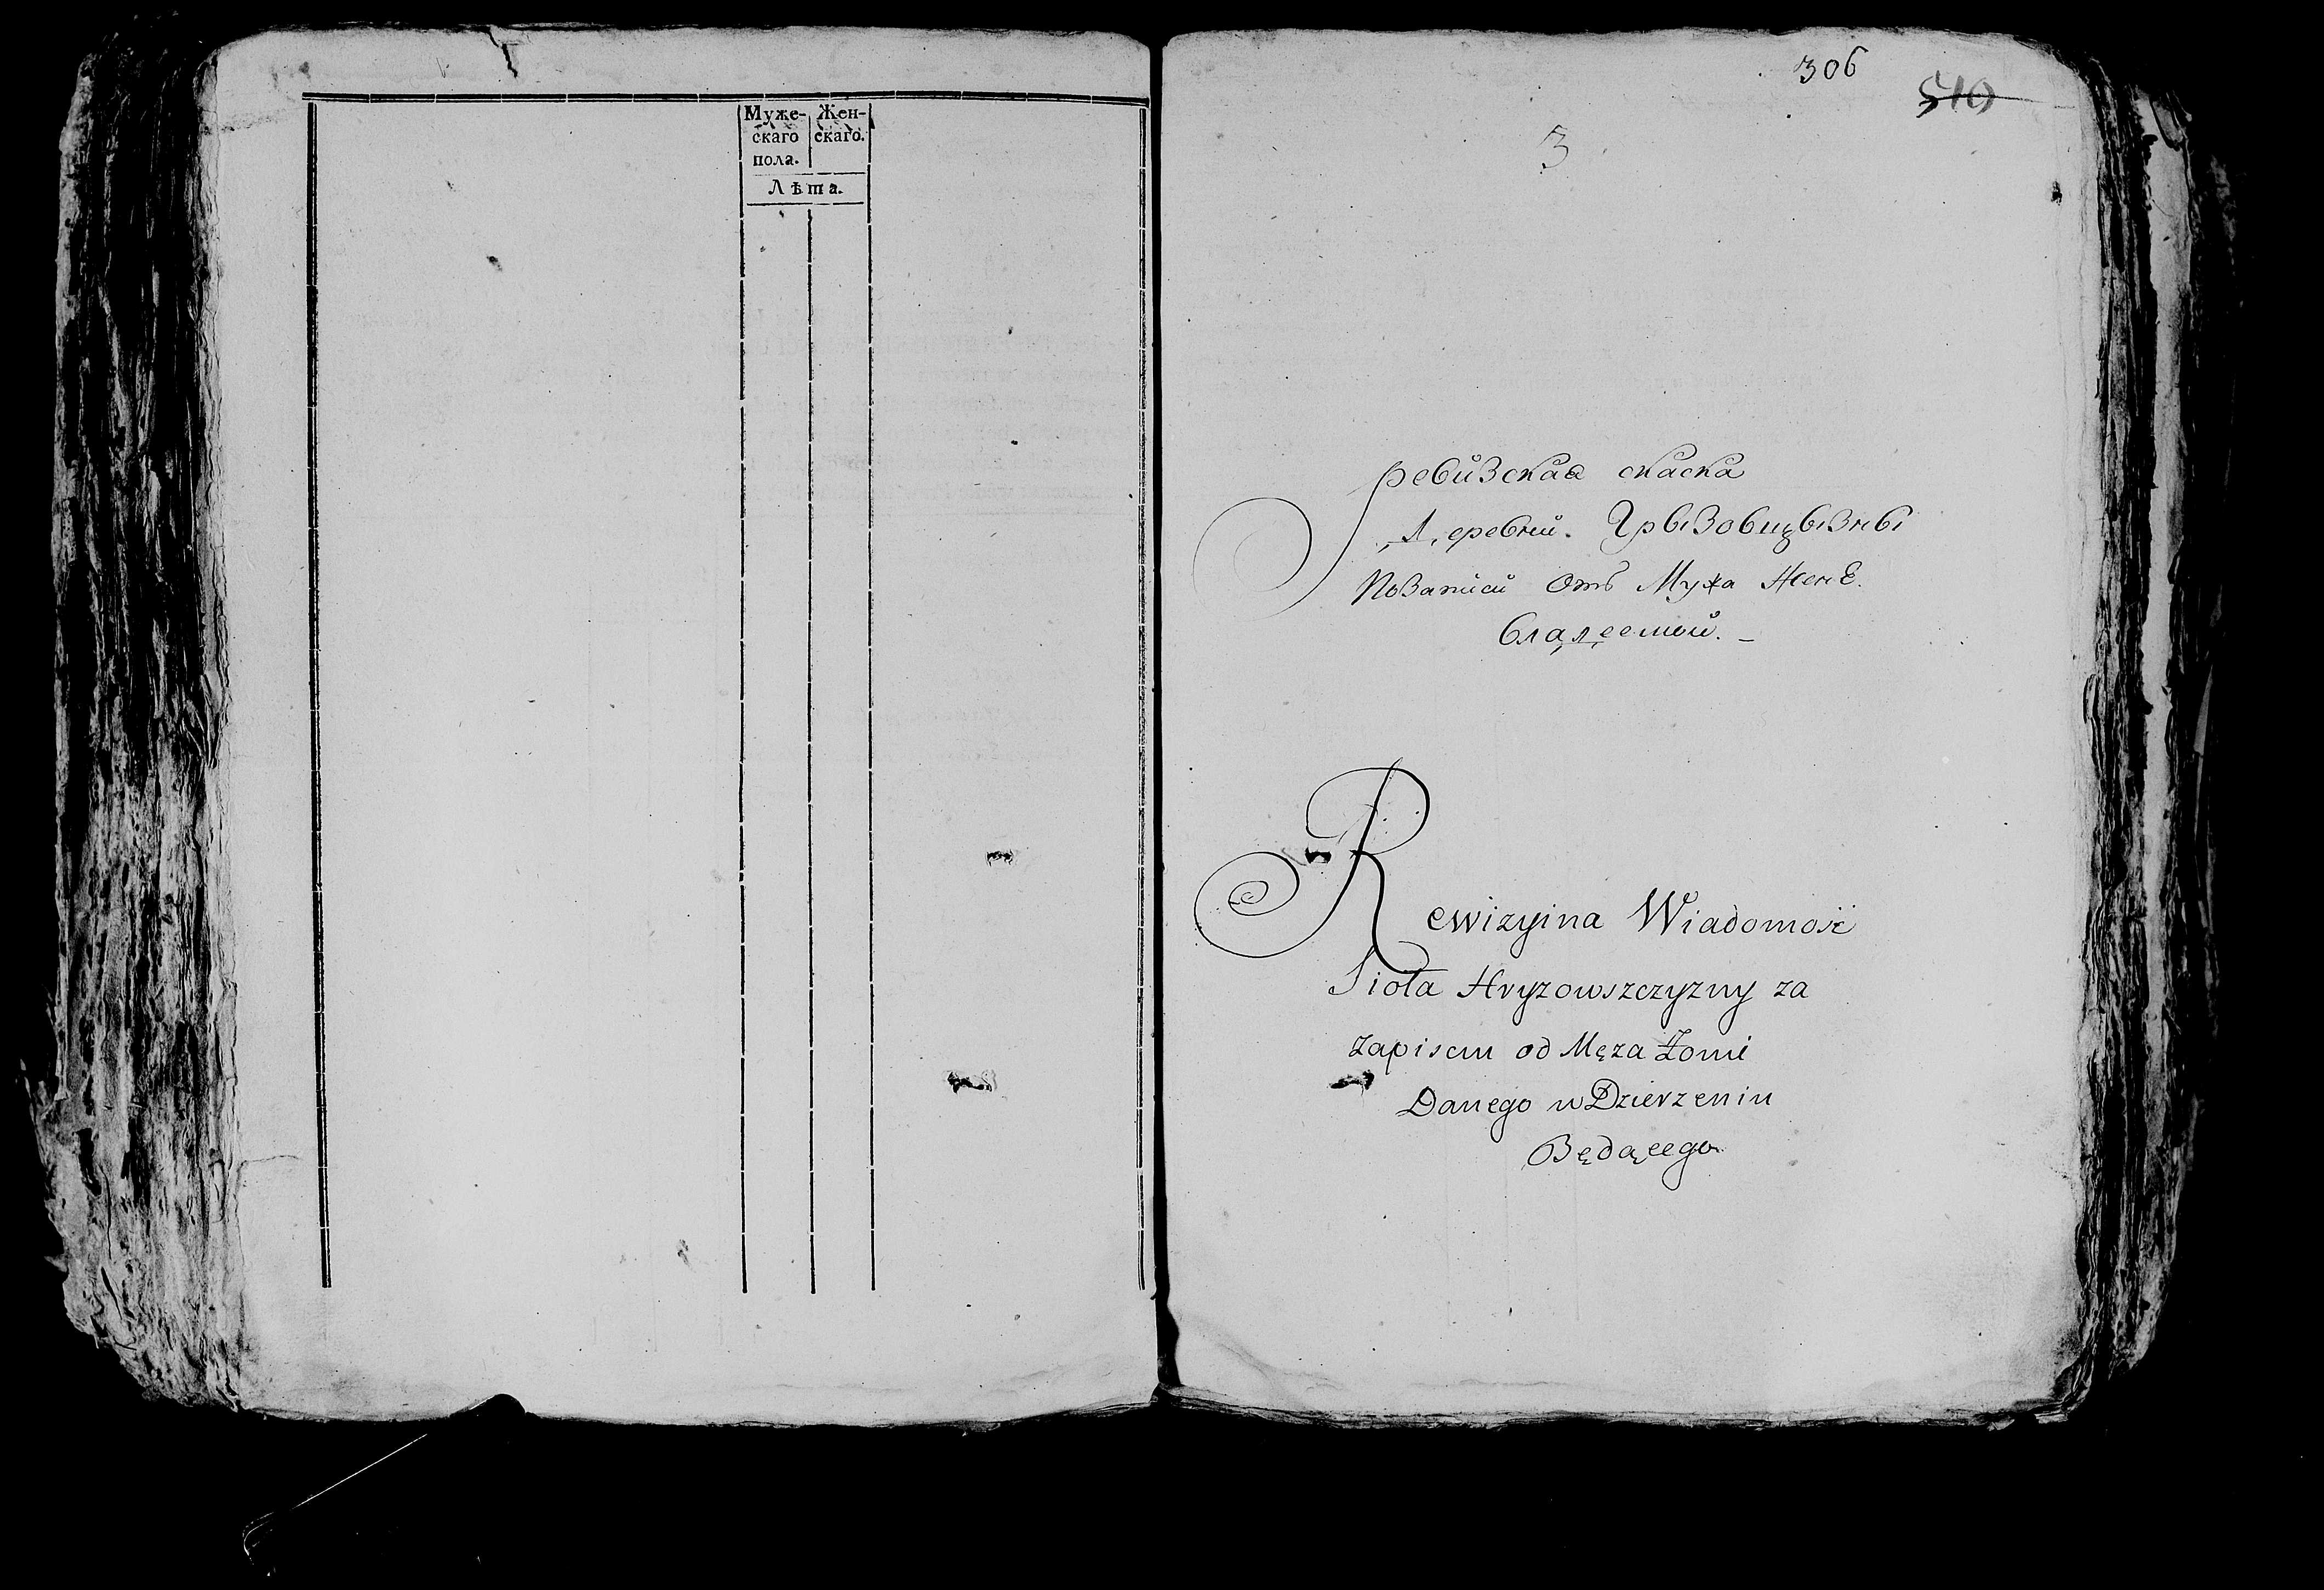 Муже- Жен-
скаго скаго.
пола.
Лѣта.
306
540
3
ревизская скаска
деревни. Грызовщызны
По записи Отъ Мужа Жене.
владеемой. -
Rewizyina Wiadomość
Sioła Hryzowszczyzny za
Zapisem od Męza Zonie
Danego w Dzierzeniu
Będącego